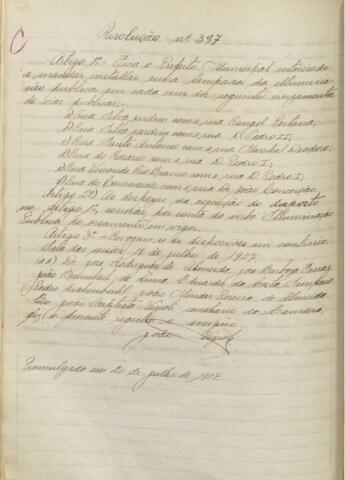 C
Resolução nº 397
Artigo 1º - Fica o Prefeito Municipal autorisado
a mandar installar uma lampada da illumina-
ção publica em cada um dos seguintes cruzamentos
de vias publicas:
Rua Silva Jardim com a rua Rangel Pestana;
Rua Silva Jardim com a rua D. Pedro II;
Rua Santo Antonio com a rua Marechal Deodoro;
Rua do Rosario com a rua D. Pedro I;
Rua Visconde Rio Branco com a rua D. Pedro I;
Rua do Commercio com a rua Dr. João Conceição.
Artigo 2º As despezas da execução do disposto
no artigo 1º, correrão por conta da verba Illuminação
Publica do orçamento em vigor.
Artigo 3º - Revogam-se as disposições em contrario.
Sala das sessões 18 de julho de 1927.
(aa) Dr. José Rodrigues de Almeida, José Barbosa Ferraz,
João de Lima, Eduardo da Costa Sampaio
Pedro João Mendes Pereira de Almeida
Eu, João Baptista Vizioli, secretario da Camara,
fiz o presente registro e assigno
João Vizioli
Promulgada em 20 de julho de 1927